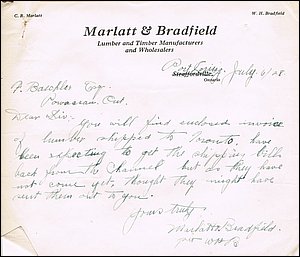 C. R. Marlatt
W. H. Bradfield
Marlatt & Bradfield
Lumber and Timber Manufacturers
and Wholesalers
Port Loring, July 6/28
Straffordville,
Ontario
Esq.
Powassan, Ont.
Dear Sir:-
You will find enclosed invoice
of lumber shipped to Toronto, have
been expecting to get the shipping bills
back from the Channel but as they have
not come yet, thought they might have
sent them out to you.
Yours truly
Marlatt & Bradfield.
per WHB